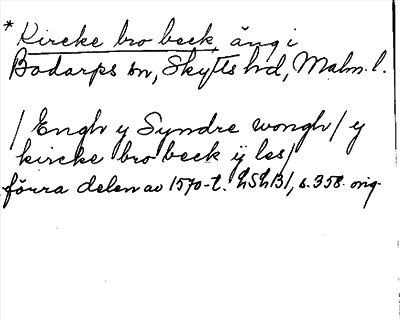 * Kircke bro beck, äng i
Bodarps sn, Skytts hd, Malm. l.
/ Engh y Syndre wongh / y
kircke bro beck ÿ les /
förra delen av 1570-t. LSLB1, s. 358 orig.